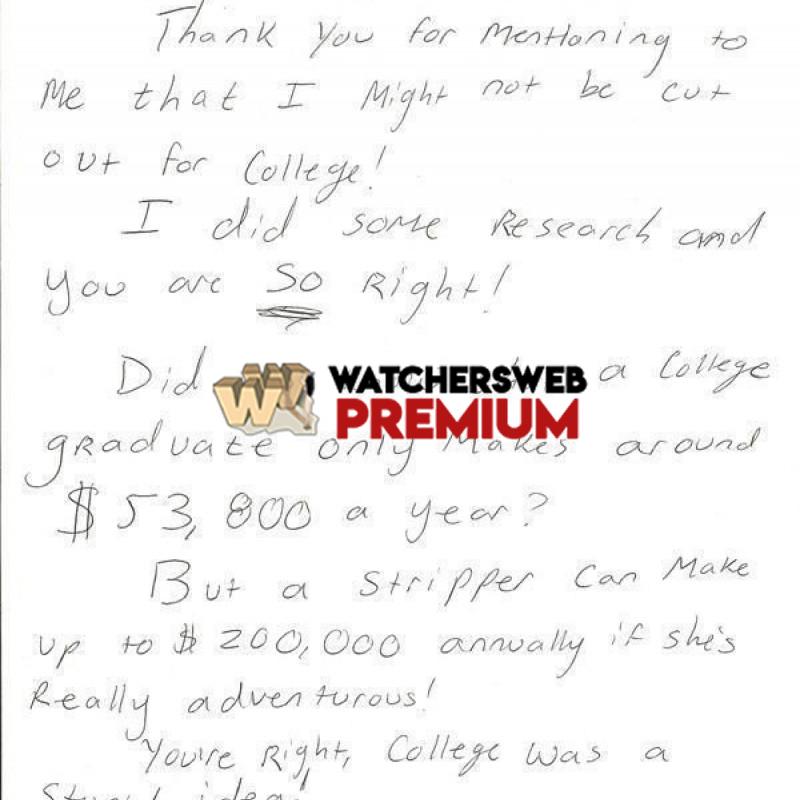 Thank you for mentioning to
Me that I Might not be cut
out for College!
I did some Research and
you are So Right!
Did a College
WATCHERSWEB
PREMIUM
graduate only Makes around
$53,800 a year?
But a Stripper Can Make
up to $200,000 annually if she's
Really adventurous!
You're Right, College was a
idea!